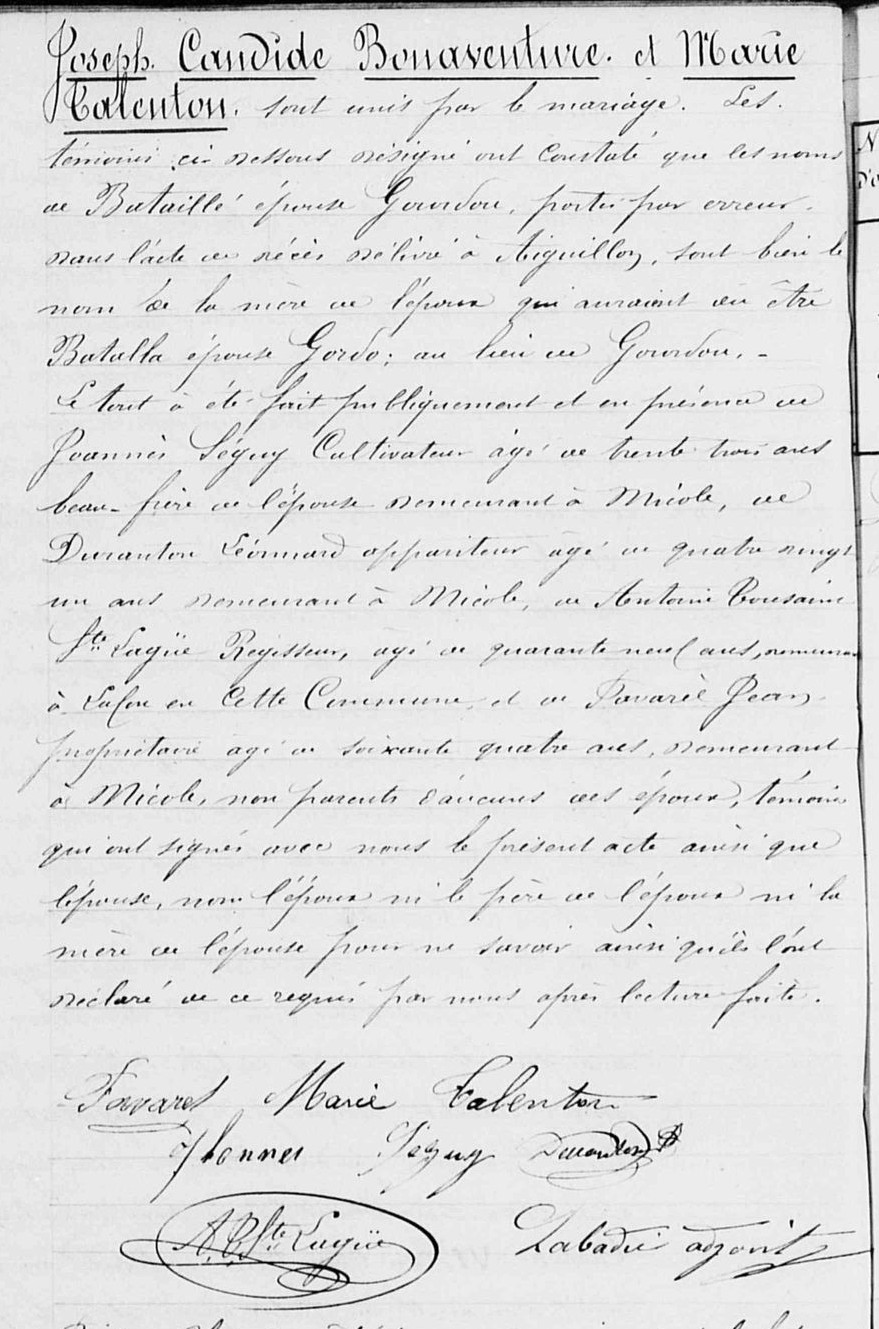 Joseph. Candide Bonaventure. et Marie
Talenton. sont unis par le mariage. Les.
témoins ci-dessous désigné ont constaté que les noms
de Bataillé épouse Gourdon, portés par erreur.
dans l'acte de décès délivré à Aiguillon, sont bien le
nom de la mère de l'époux qui auraient dû être
Batalla épouse Gordo; au lieu de Gourdon. -
Le tout à été fait publiquement et en présence de
Joannès Séguy Cultivateur âgé de trente trois ans
beau-frère de l'épouse demeurant à Nicole, de
Duranton Léonnard appariteur âgé de quatre vingt
un ans demeurant à Nicole, de Antoine Tousaint
Ste Lagüe Régisseur, âgé de quarante neuf ans, demeurant
à en Cette Commune, et de Favarèl Jean
propriétaire âgé de soixante quatre ans, demeurant
à Nicole, non parents d'aucuns des époux, témoins
qui ont signés avec nous le présent acte ainsi que
l'épouse, non l'époux ni le père de l'époux ni la
mère de l'épouse pour ne savoir ainsi qu'ils l'ont
déclaré de ce requis par nous après lecture faite.
Favarel Marie Talenton
Séguy Duranton
A. T. Ste Lagüe Labadie adjoint